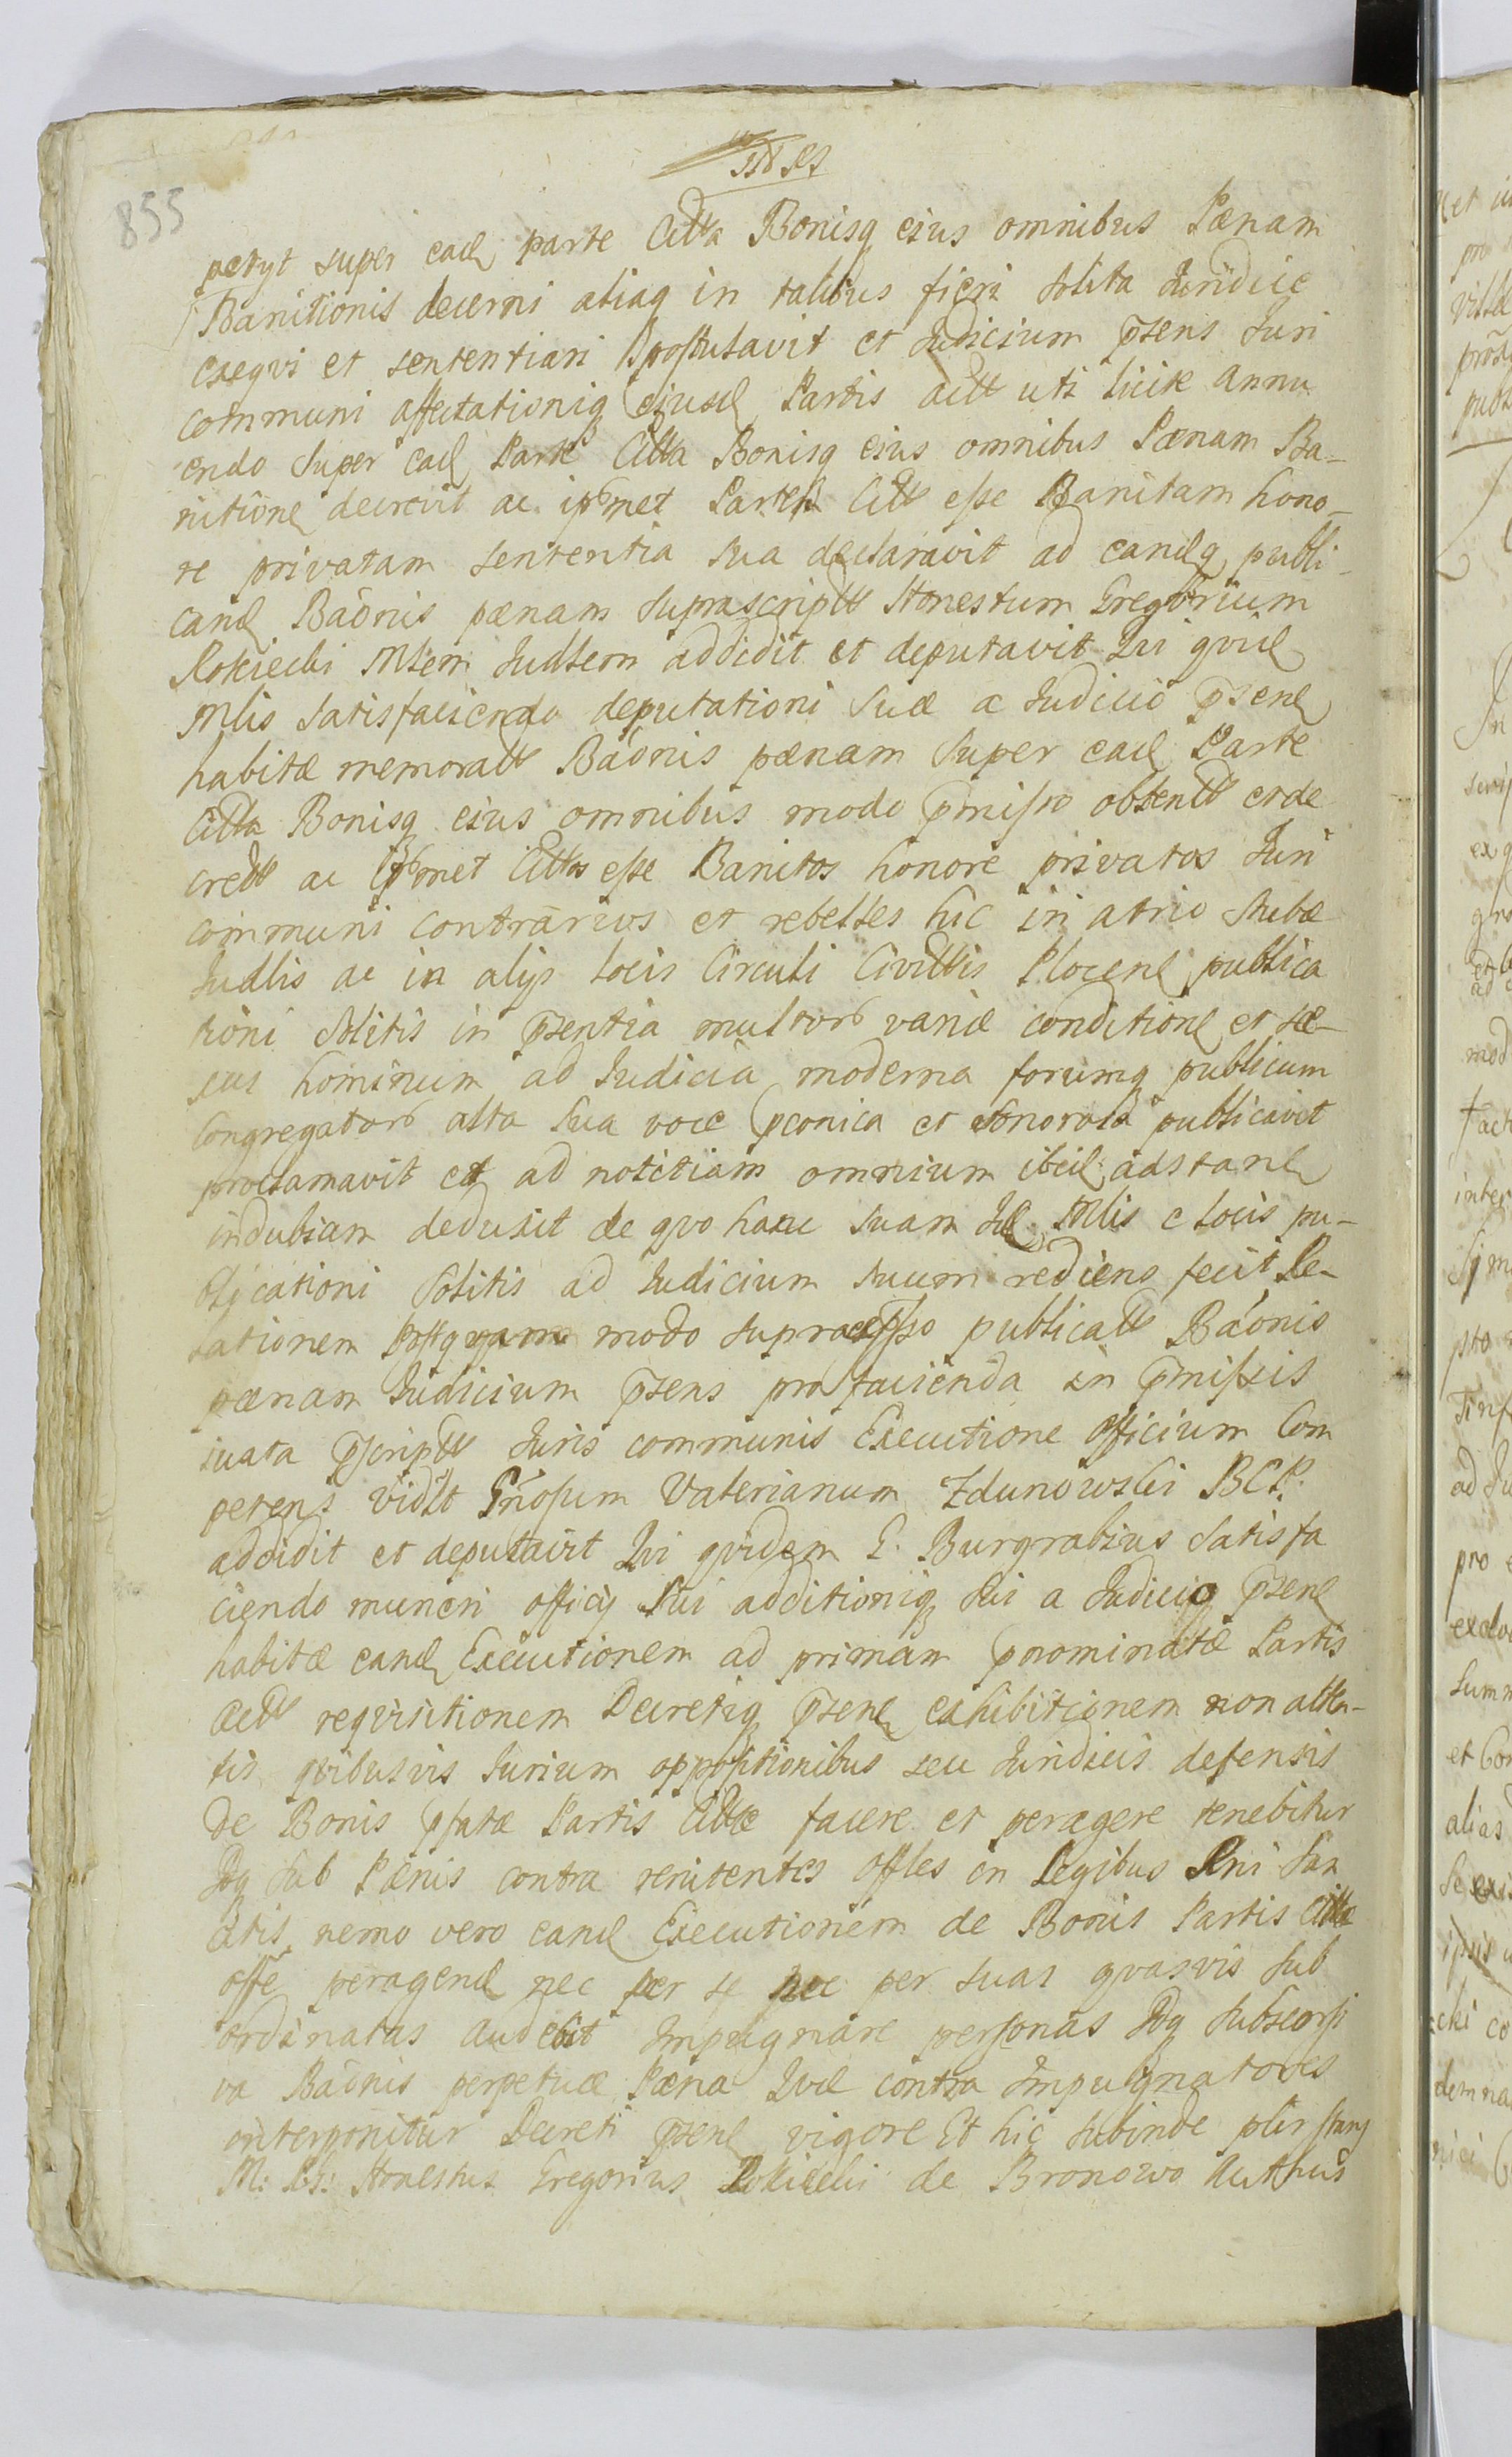 855
petyt super eade parte Citta Bonisq eius omnibus Pænam
Banitionis decerni aliaq in talibus fieri solita Juridice
exeqvi et sententiari postulavit et Judicium pñsens Juri
communi affectationiq ejusd Partis actt uti licite annu
endo super ead Parte Citta Bonisq eius omnibus Pænam Ba-
nitione decrevit ac ipsmet Partem Citt esse Banitam hono-
re privatam sententia sua declaravit ad eandq publi-
cand Baönis pænam suprascriptt Honestum Gregorium
Rokiecki Mlem Judlem addidit et deputavit Qui qvid
Mlis satisfaciendo deputationi suæ a Judicio pñsene
habitæ memoratt Baönis pænam super ead Parte
Citta Bonisq eius omnibus modo pmisso obtentt et de
crett ac ipsmet Cittos esse Banitos honore privatos Juri
communi contrarios et rebelles hic in atrio stubæ
Judlis ac in alijs locis Circuli Civillis Plocene publica
tioni solitis in pñsentia multor variæ conditione et sæ-
xus hominum ad Judicia moderna forumq publicum
congregator alta sua voce pconica et sonorosa publicavit
proclamavit et ad notitiam omnium ibid adstane
indubiam deduxit de qvo hanc suam Id Mlis e locis pu-
blicationi solitis ad Judicium suum rediens fecit Re-
lationem Postqvam modo supraexpsso publicatt Baönis
pænam Judicium pñsens pro facienda in pmissis
iuxta pscriptt Juris communis Executione officium Com
petens vidlt Gñosum Valerianum Zdunowski BCP.
addidit et deputavit Qui qvidem G. Burgrabius satisfa
ciendo muneri officij sui additioniq sui a Judicio pñsene
habitæ eand Executionem ad primam pnominatæ Partis
actt reqvisitionem Decretiq pñsene exhibitionem non atten-
tis qvibusvis Jurium oppositionibus seu Juridicis defensis
de Bonis pfatæ Partis Cittæ facere et peragere tenebitur
Idq sub Pænis contra renitentes offles in Legibus Rni san
citis nemo vero eand Executionem de Bonis Partis Cittæ
offe peragend nec per se nec per suas qvasvis sub
ordinatas audebit Impugnare personas Idq sub
va Baönis perpetuæ Pæna Qvæ contra Impugnatores
interponitur Decreti pñsene vigore Et hic subinde plir stans
M: Rg: Honestus Gregorius Rokiecki de Bronowo Authus